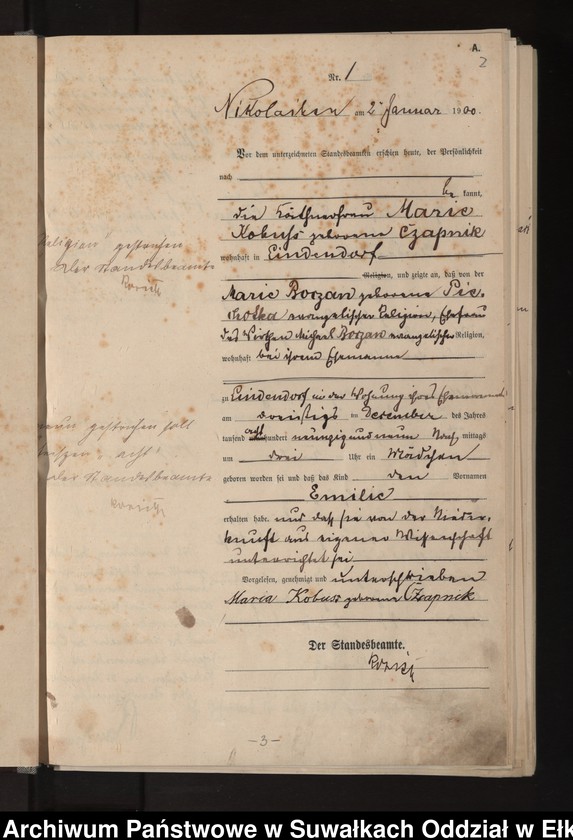 A.
2
Nr. 1
Nikolaiken am 2ten Januar 1900.
Vor dem unterzeichneten Standesbeamten erschien heute, der Persönlichkeit
nach
be kannt,
die Käthnerfrau Marie
Kobuss geborene Czapnik
wohnhaft in Lindendorf
Religion, und zeigte an, daß von der
Marie Boczan geborene Pie-
chotka evangelischer Religion, Ehefrau
des Wirthen Michael Boczan evangelischer Religion,
wohnhaft bei ihrem Ehemanne
zu Lindendorf in der Wohnung ihres Ehemannes
am dreißigsten Dezember des Jahres
tausend acht hundert neunzig und neun Nach mittags
um drei Uhr ein Mädchen
geboren worden sei und daß das Kind den Vornamen
Emilie
erhalten habe, und daß sie von der Nieder-
kunft aus eigener Wissenschaft
unterrichtet sei
Vorgelesen, genehmigt und unterschrieben
Maria Kobuss geborene Czapnik
Der Standesbeamte.
-3-
Religion gestrichen
Der Standesbeamte
neun gestrichen soll
acht
der Standesbeamte
Archiwum Państwowe w Suwałkach Oddział w Ełk